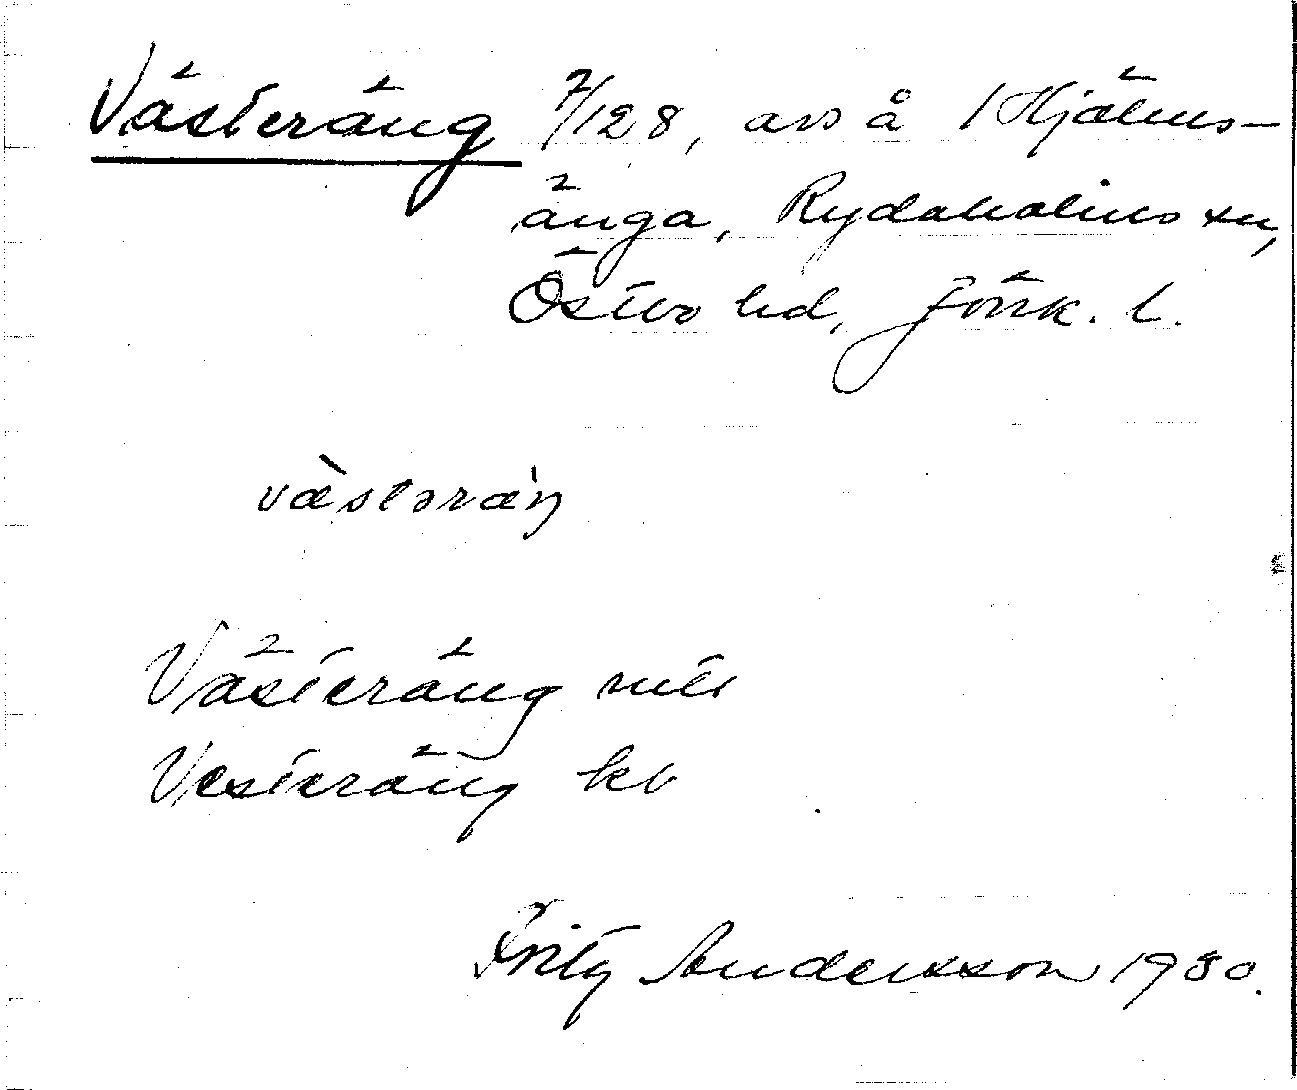 Västeräng 7/128, avs å 1 Hjälms-
änga, Rydaholms sn,
Östbo hd, Jönk. l.
væ̀stəræ̀ŋ
Västeräng mtl
Vesteräng kb
Frity Andersson 1930.